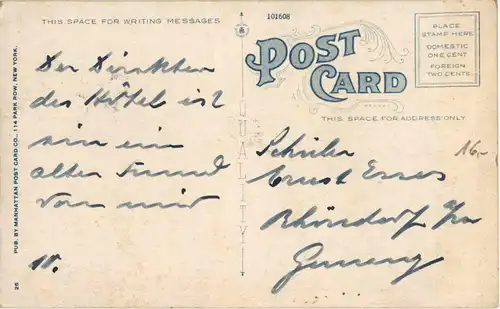 THIS SPACE FOR WRITING MESSAGES
Der Direktor
des Hotel ist
ein
alter Freund
von mir
101608
POST CARD
PLACE
STAMP HERE
DOMESTIC
ONE CENT
FOREIGN
TWO CENTS
THIS SPACE FOR ADDRESS ONLY
QUALITY
16.-
Schüler
Ernst
Rhöndorf
Germany
PUB. BY MANHATTAN POST CARD CO., 114 PARK ROW, NEW YORK.
26